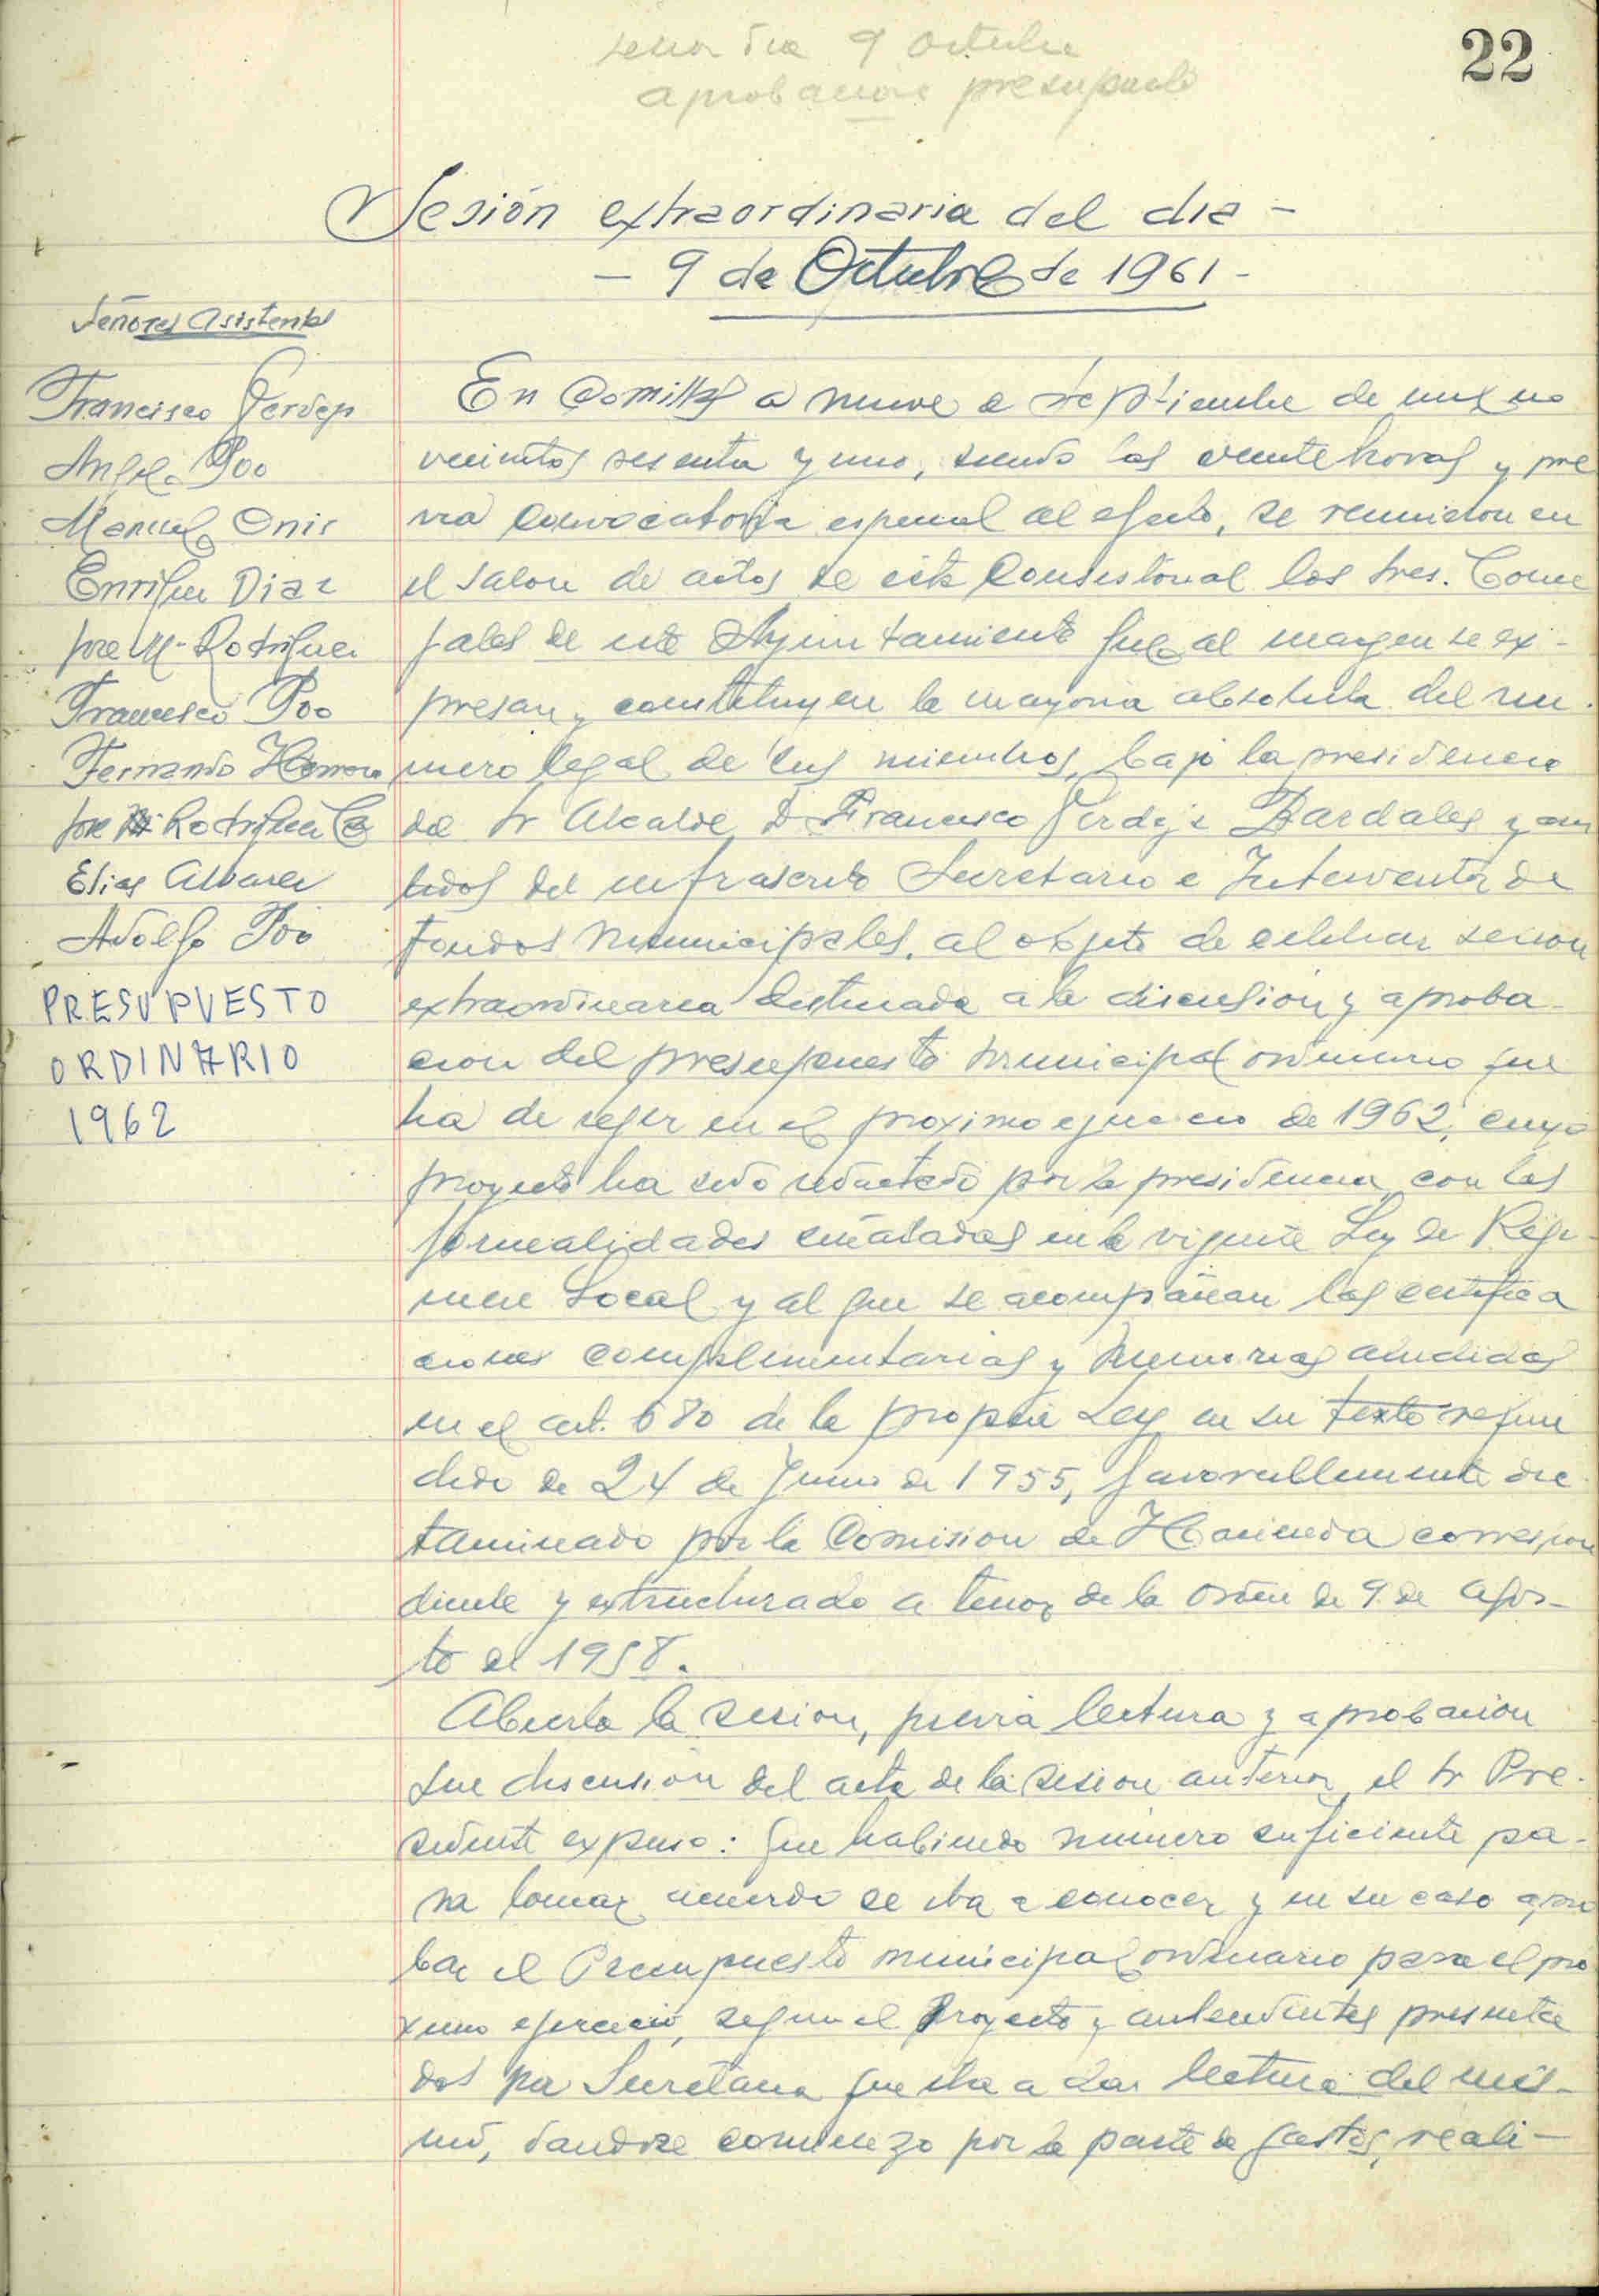 sesion dia 9 octubre
aprobacion presupuesto
22
Sesión extraordinaria del dia -
- 9 de Octubre de 1961 -
Señores asistentes
Francisco
Angel Poo
Manuel Onis
Enrique Diaz
Jose Mª Rodriguez
Francisco Poo
Fernando Herrera
Jose Rodriguez
Elias Alvarez
Adolfo Poo
PRESUPUESTO
ORDINARIO
1962
En Comillas a nueve de septiembre de mil no
vecientos sesenta y uno, siendo las veinte horas y pre
via convocatoria especial al efecto, se reunieron en
el salon de actos de esta Consistorial los Sres. Conce
jales de este Ayuntamiento que al margen se ex-
presan y constituyen la mayoria absoluta del nu-
mero legal de sus miembros, bajo la presidencia
del Sr Alcalde D. Francisco Bardales y asis
tidos del infrascrito Secretario e Interventor de
fondos municipales, al objeto de celebrar sesion
extraordinaria destinada a la discusion y aproba-
cion del presupuesto municipal ordinario que
ha de regir en el proximo ejercicio de 1962, cuyo
proyecto ha sido redactado por la presidencia con las
formalidades señaladas en la vigente Ley de Regi-
men Local y al que se acompañan las certifica
ciones complementarias y memorias aludidas
en el art. 680 de la propia Ley en su texto refun
dido de 24 de Junio de 1955, favorablemente dic-
taminado por la Comision de Hacienda correspon
diente y estructurado a tenor de la Orden de 9 de Agos-
to de 1958.
Abierta la sesion, previa lectura y aprobacion
sin discusion del acta de la sesion anterior el Sr Pre-
sidente expuso: que habiendo número suficiente pa-
ra tomar acuerdo se iba a conocer y en su caso apro
bar el Presupuesto municipal ordinario para el pro
ximo ejercicio, segun el Proyecto y antecedentes presenta
dos por Secretaria que iba a dar lectura del mis-
mo, dandose comienzo por la parte de gastos, reali-